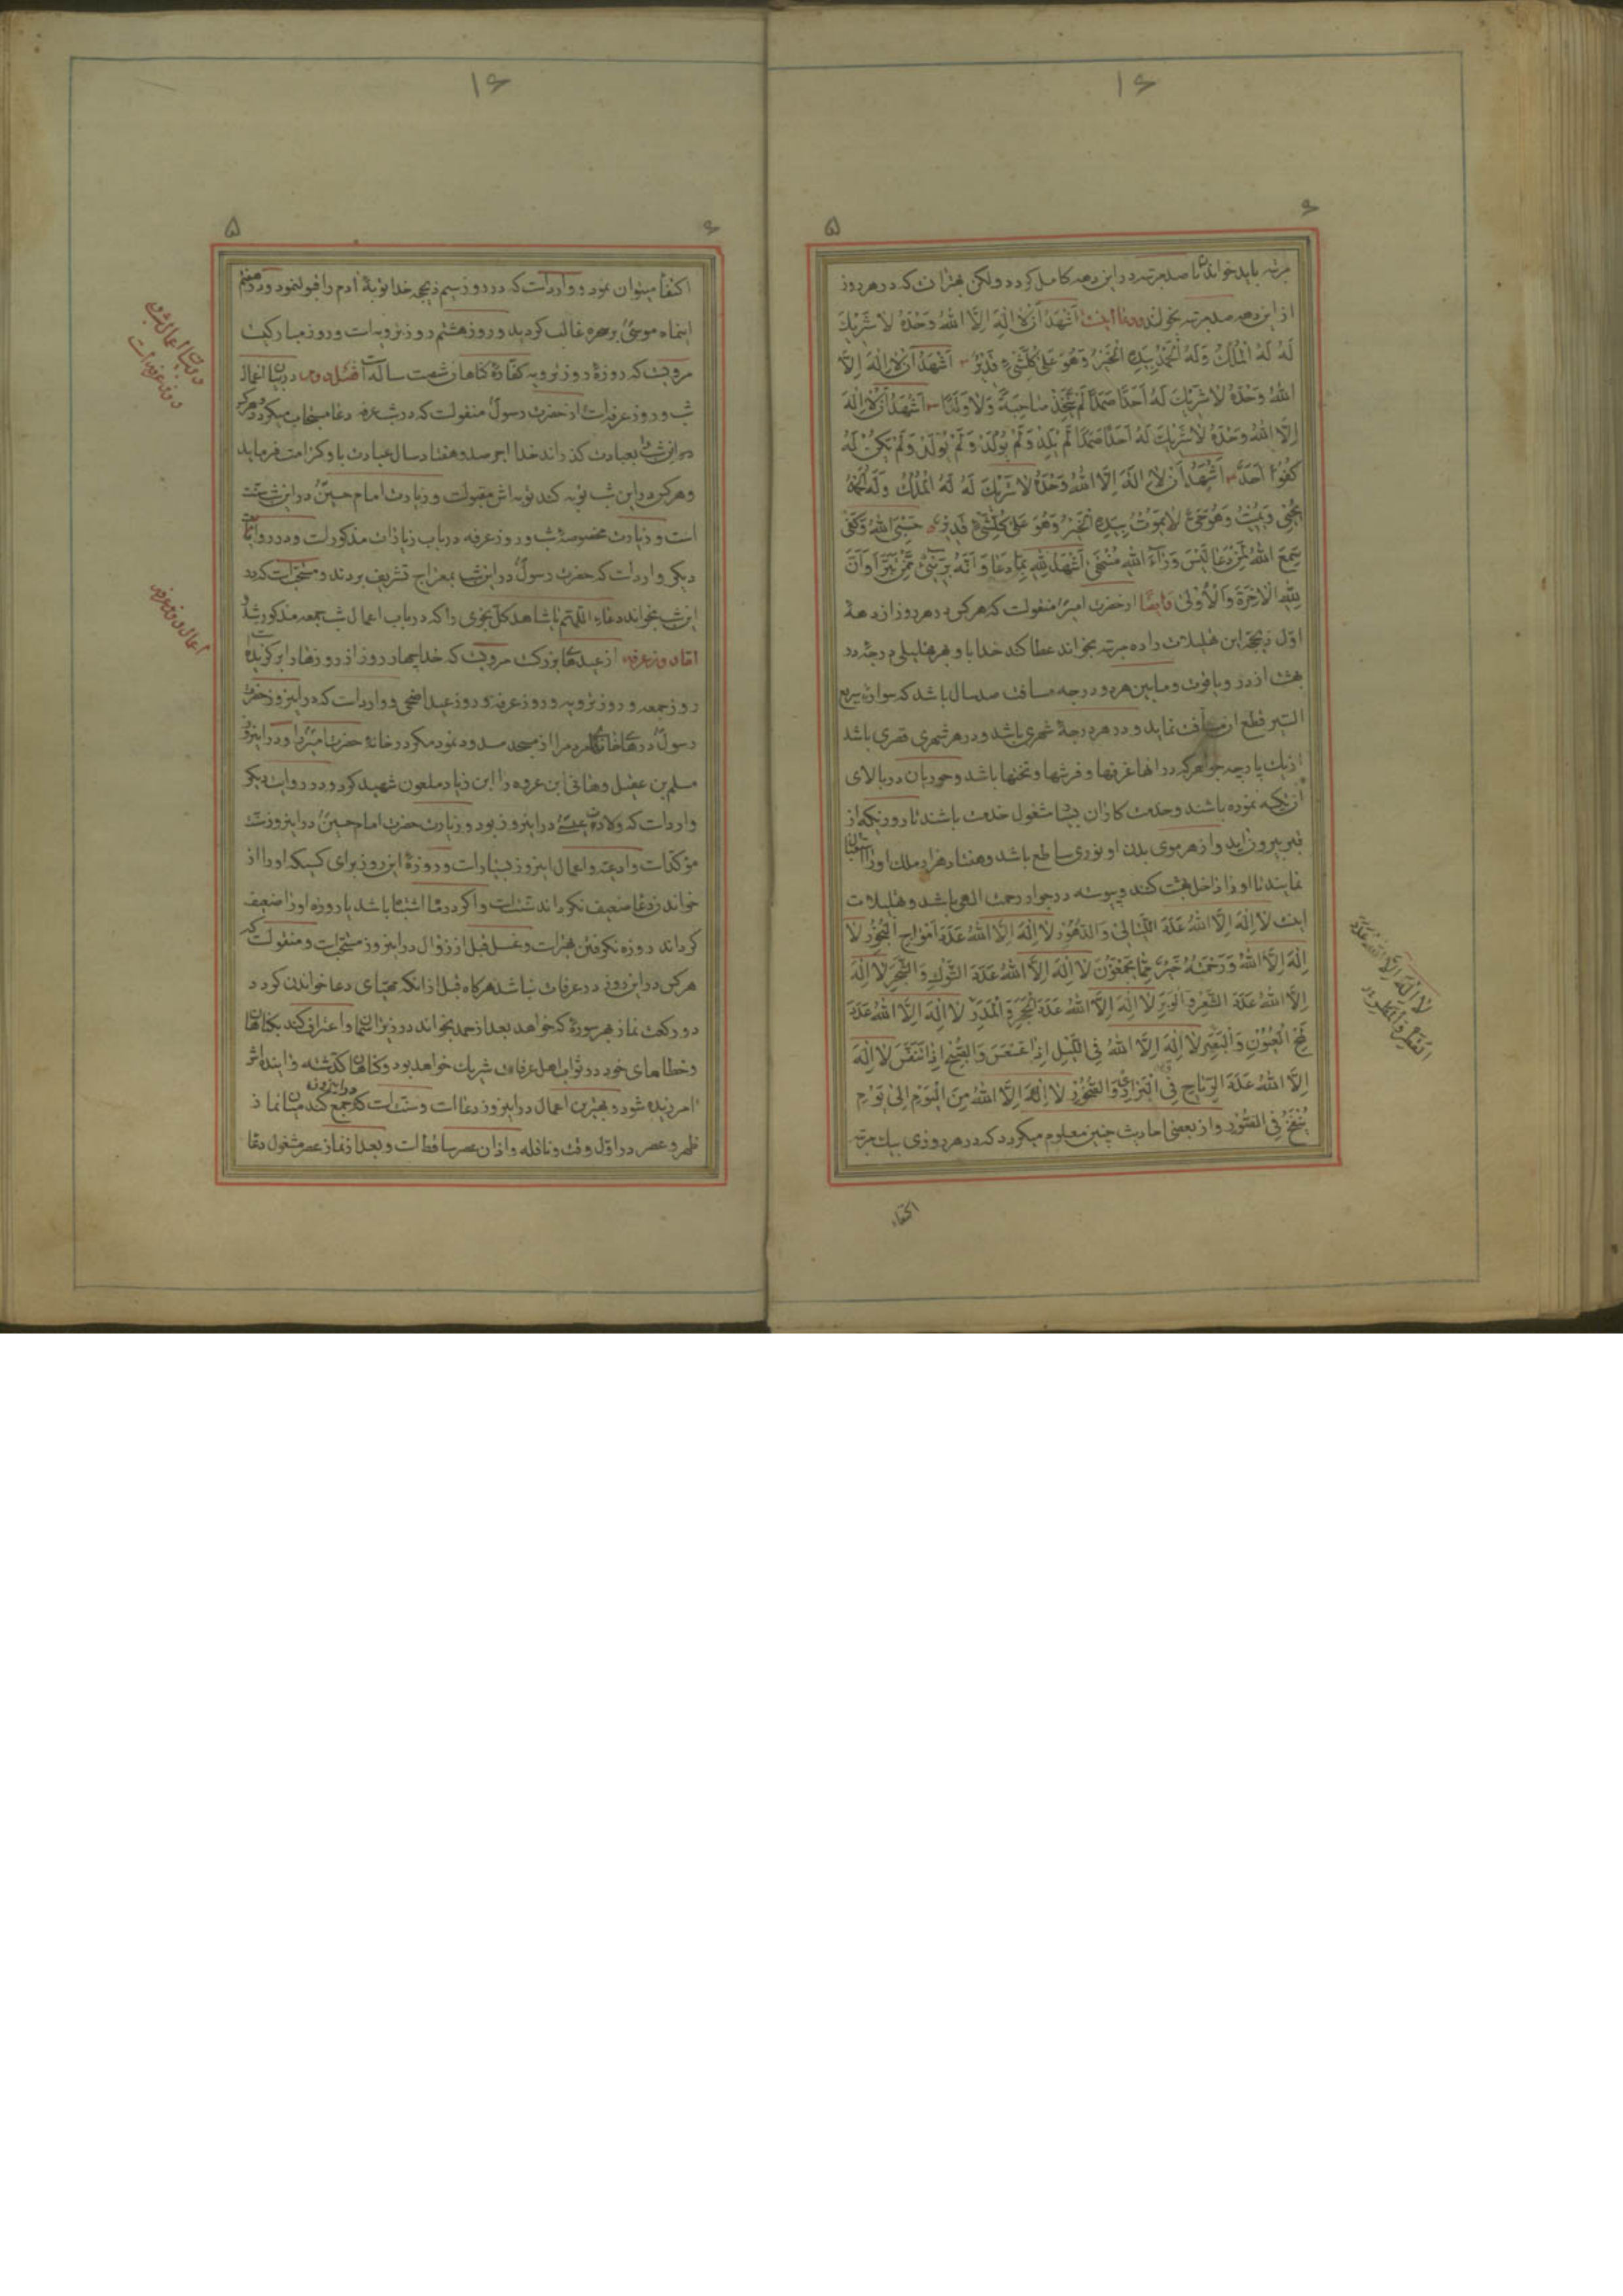 ۱۶
۶
۵
مرتبه باید خواند تا صد مرتبه در این دهه کامل کردد ولکن بهتر انست که در هر روز
از این دهه صد مرتبه بخواند ودعا اینست اَشْهَدُ اَنْ لا اِلهَ اِلَّا اللهُ وَحْدَهُ لا شَرِیكَ
لَهُ لَهُ الْمُلْكُ وَلَهُ الْحَمْدُ بِیَدِهِ الْخَیْرُ وَهُوَ عَلی کُلِّشَیْءٍ قَدِیْرٌ ۲ اَشْهَدُ اَنْ لا اِلهَ اِلَّا
اللهُ وَحْدَهُ لا شَرِیكَ لَهُ اَحَدًا صَمَدًا لَمْ یَتَّخِذْ صاحِبَةً وَلا وَلَدًا ۳ اَشْهَدُ اَنْ لا اِلهَ
اِلَّا اللهُ وَحْدَهُ لا شَرِیكَ لَهُ اَحَدًا صَمَدًا لَمْ یَلِدْ وَلَمْ یُولَدْ وَلَمْ یَکُنْ لَهُ
کُفُوًا اَحَدٌ ۴ اَشْهَدُ اَنْ لا اِلهَ اِلَّا اللهُ وَحْدَهُ لا شَرِیكَ لَهُ لَهُ الْمُلْكُ وَلَهُ الْحَمْدُ
یُحْیِی وَیُمِیْتُ وَهُوَ حَیٌّ لا یَمُوْتُ بِیَدِهِ الْخَیْرُ وَهُوَ عَلی کُلِّشَیْءٍ قَدِیْرٌ ۵ حَسْبِیَ اللهُ وَکَفی
سَمِعَ اللهُ لِمَنْ دَعا لَیْسَ وَرآءَ اللهِ مُنْتَهی اَشْهَدُ لِلّهِ بِما دَعا وَ اَنَّهُ بَرِیْءٌ مِمَّنْ تَبَرَّأَ وَاَنَّ
لِلّهِ الْاخِرَةَ وَالْاُوْلی وایضًا از حضرت امیر منقولست که هر کس در هر روز از دههٔ
اوّل ذیحجّه این تهلیلات را ده مرتبه بخواند عطا کند خدا باو بهر تهلیلی درجهٔ در
بهشت از در و یاقوت و مابین هر دو درجه مسافت صد سال باشد که سواره سریع
السّیر قطع ان مسافت نماید و در هر درجهٔ شهری باشد و در هر شهری قصری باشد
از یك پارچه جواهر که در انها غرفها و فرشها و تختها باشد و حوریان در بالای
ان تکیه نموده باشند و خدمت کاران بسیار مشغول خدمت باشند تا روزیکه از
قبر بیرون اید و از هر موی بدن او نوری ساطع باشد و هفتاد هزار ملك او را استقبال
نمایند تا او را داخل بهشت کنند و پیوسته در جوار رحمت الهی باشد و تهلیلات
اینست لا اِلهَ اِلَّا اللهُ عَدَدَ اللَّیالِیْ وَالدُّهُوْرِ لا اِلهَ اِلَّا اللهُ عَدَدَ اَمْواجِ الْبُحُوْرِ لا
اِلهَ اِلَّا اللهُ وَرَحْمَتُهُ خَیْرٌ مِمّا یَجْمَعُوْنَ لا اِلهَ اِلَّا اللهُ عَدَدَ الشَّوْكِ وَالشَّجَرِ لا اِلهَ
اِلَّا اللهُ عَدَدَ الشَّعْرِ وَالْوَبَرِ لا اِلهَ اِلَّا اللهُ عَدَدَ الْحَجَرِ وَالْمَدَرِ لا اِلهَ اِلَّا اللهُ عَدَدَ
لَمْحِ الْعُیُوْنِ وَالْبَصَرِ لا اِلهَ اِلَّا اللهُ فِی اللَّیْلِ اِذا عَسْعَسَ وَالصُّبْحِ اِذا تَنَفَّسَ لا اِلهَ
اِلَّا اللهُ عَدَدَ الرِّیاحِ فِی الْبَرارِی وَالصُّخُوْرِ لا اِلهَ اِلَّا اللهُ مِنَ الْیَوْمِ اِلی یَوْمِ
یُنْفَخُ فِی الصُّوْرِ و از بعضی احادیث چنین معلوم میکردد که در هر روزی یك مرتبه
لا اِلهَ اِلَّا اللهُ عَدَدَ
الْقَطْرِ وَالْمَطَرِ
اکتفاء
۱۶
۶
۵
اکتفا میتوان نمود و وارد است که در روز سیم ذیحجه خدا توبهٔ آدم را قبول نمود و روز هفتم
اینماه موسیٰ بر سحره غالب کردید و روز هشتم روز ترویه است و روز مبارکیست
مرویست که روزهٔ روز ترویه کفّارهٔ کناهان شصت ساله است فصل دوم در بیان اعمال
شب و روز عرفه است از حضرت رسول منقولست که در شب عرفه دعا مستجاب میکردد و هر کس
در این شب بعبادت کذراند خدا اجر صد و هفتاد سال عبادت باو کرامت فرماید
و هر کس در این شب توبه کند توبه اش مقبولست و زیارت امام حسین در این شب سنّت
است و زیارت مخصوصهٔ شب و روز عرفه در باب زیارات مذکور است و در روایت
دیکر وارد است که حضرت رسول در این شب بمعراج تشریف بردند و مستحب است که در
این شب بخواند دعاء اللّهم یا شاهد کلّ نجوی را که در باب اعمال شب جمعه مذکور شد
امّا روز عرفه از عیدهای بزرکست مرویست که خدا چهار روز از روزها را بر کزیده
روز جمعه و روز ترویه و روز عرفه و روز عید اضحی و وارد است که در اینروز حضرت
رسول درهای خانهای مردم را از مسجد مسدود نمود مکر در خانهٔ حضرت امیر را و در اینروز
مسلم بن عقیل و هانی ابن عروه را ابن زیاد ملعون شهید کرد و در روایت دیکر
وارد است که ولادت عیسی در اینروز بود و زیارت حضرت امام حسین در اینروز سنّت
مؤکّد است و ادعیه و اعمال اینروز بسیار است و روزهٔ این روز برای کسیکه او را از
خواندن دعا ضعیف نکرداند سنّت است و اکر در ماه اشتباه باشد یا روزه او را ضعیف
کرداند روزه نکرفتن بهتر است و غسل قبل از زوال در اینروز مستحب است و منقولست که
هر کس در این روز در عرفات نباشد هر کاه قبل از انکه مهیّای دعا خواندن کردد
دو رکعت نماز بهر سورهٔ که خواهد بعد از حمد بخواند در زیر اسمان و اعتراف کند بکناهان
و خطاهای خود در ثواب اهل عرفات شریك خواهد بود و کناهان کذشته و ایندهاش
امرزیده شود و بهترین اعمال در اینروز دعا است و سنّت است که در اینروز جمع کند میان نماز
ظهر و عصر در اوّل وقت و نافله و اذان عصر ساقط است و بعد از نماز عصر مشغول دعا
در بیان اعمال شب و
روز عرفه است
اعمال روز عرفه